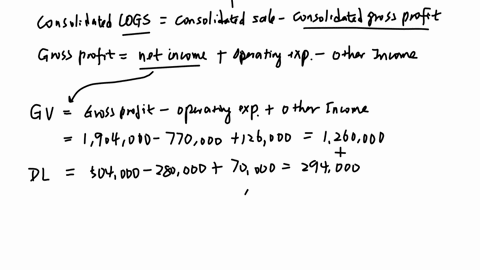 Consolidated COGS = consolidated sale - consolidated gross profit
Gross profit = net income + operating exp. - other Income
GV = Gross profit - operating exp. + other Income
= 1,904,000 - 770,000 + 126,000 = 1,260,000
+
DL = 504,000 - 280,000 + 70,000 = 294,000